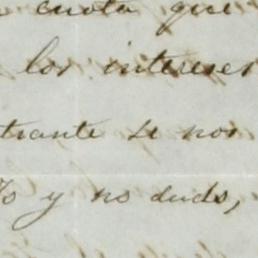 cuota que
los intereses
trante se nos
y no dudo,